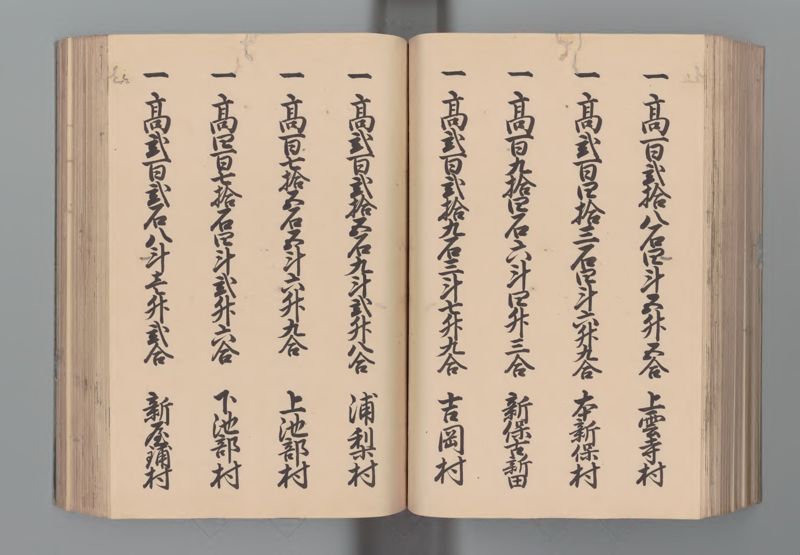 一 高百弐拾八石四斗五升五合 上雲寺村
一 高弐百四拾三石四斗六升九合 本新保村
一 高百九拾四石六斗四升三合 新保古新田
一 高弐百弐拾九石三斗七升九合 吉岡村
一 高弐百弐拾五石九斗弐升八合 浦梨村
一 高百七拾五石五斗六升九合 上池部村
一 高四百七拾石四斗弐升六合 下池部村
一 高弐百弐石八斗七升弐合 新屋鋪村